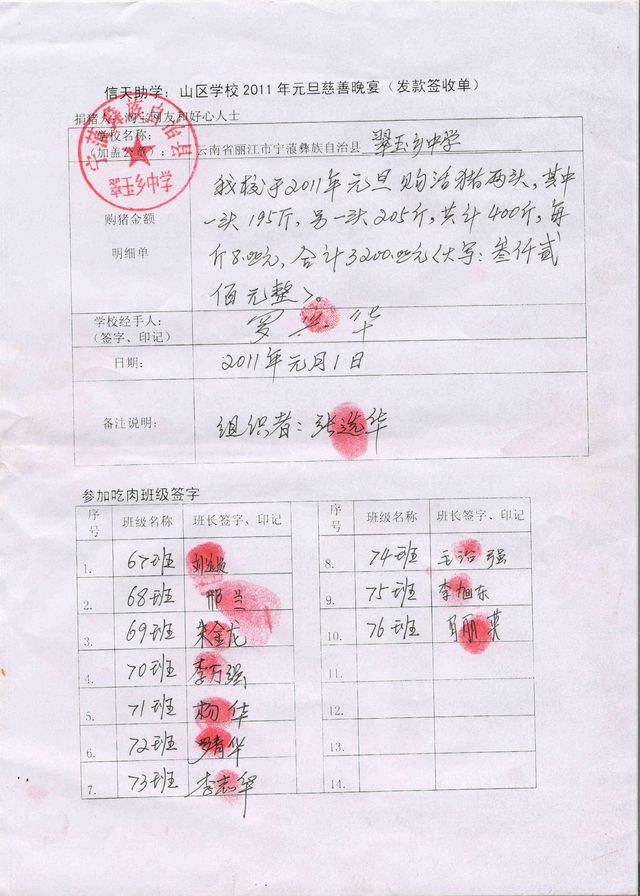 信天助学：山区学校2011年元旦慈善晚宴（发款签收单）
捐猪人：淘宝网友和好心人士
学校名称：
（加盖公章）：云南省丽江市宁蒗彝族自治县 翠玉乡中学
宁蒗彝族自治县
翠玉乡中学
购猪金额
明细单
我校于2011年元旦购活猪两头，其中
一头195斤，另一头205斤，共计400斤，每
斤8.00元，合计3200.00元<大写：叁仟贰
佰元整>。
学校经手人：
（签字、印记）
罗 华
日期：
2011年元月1日
备注说明：
组织者：张选华
参加吃肉班级签字
序号 班级名称 班长签字、印记 序号 班级名称 班长签字、印记
1. 67班
2. 68班 邢兰
3. 69班 朱金龙
4. 70班 李万强
5. 71班 杨华
6. 72班 青华
7. 73班 李志华
8. 74班 王治强
9. 75班 李旭东
10. 76班 丽英
11.
12.
13.
14.